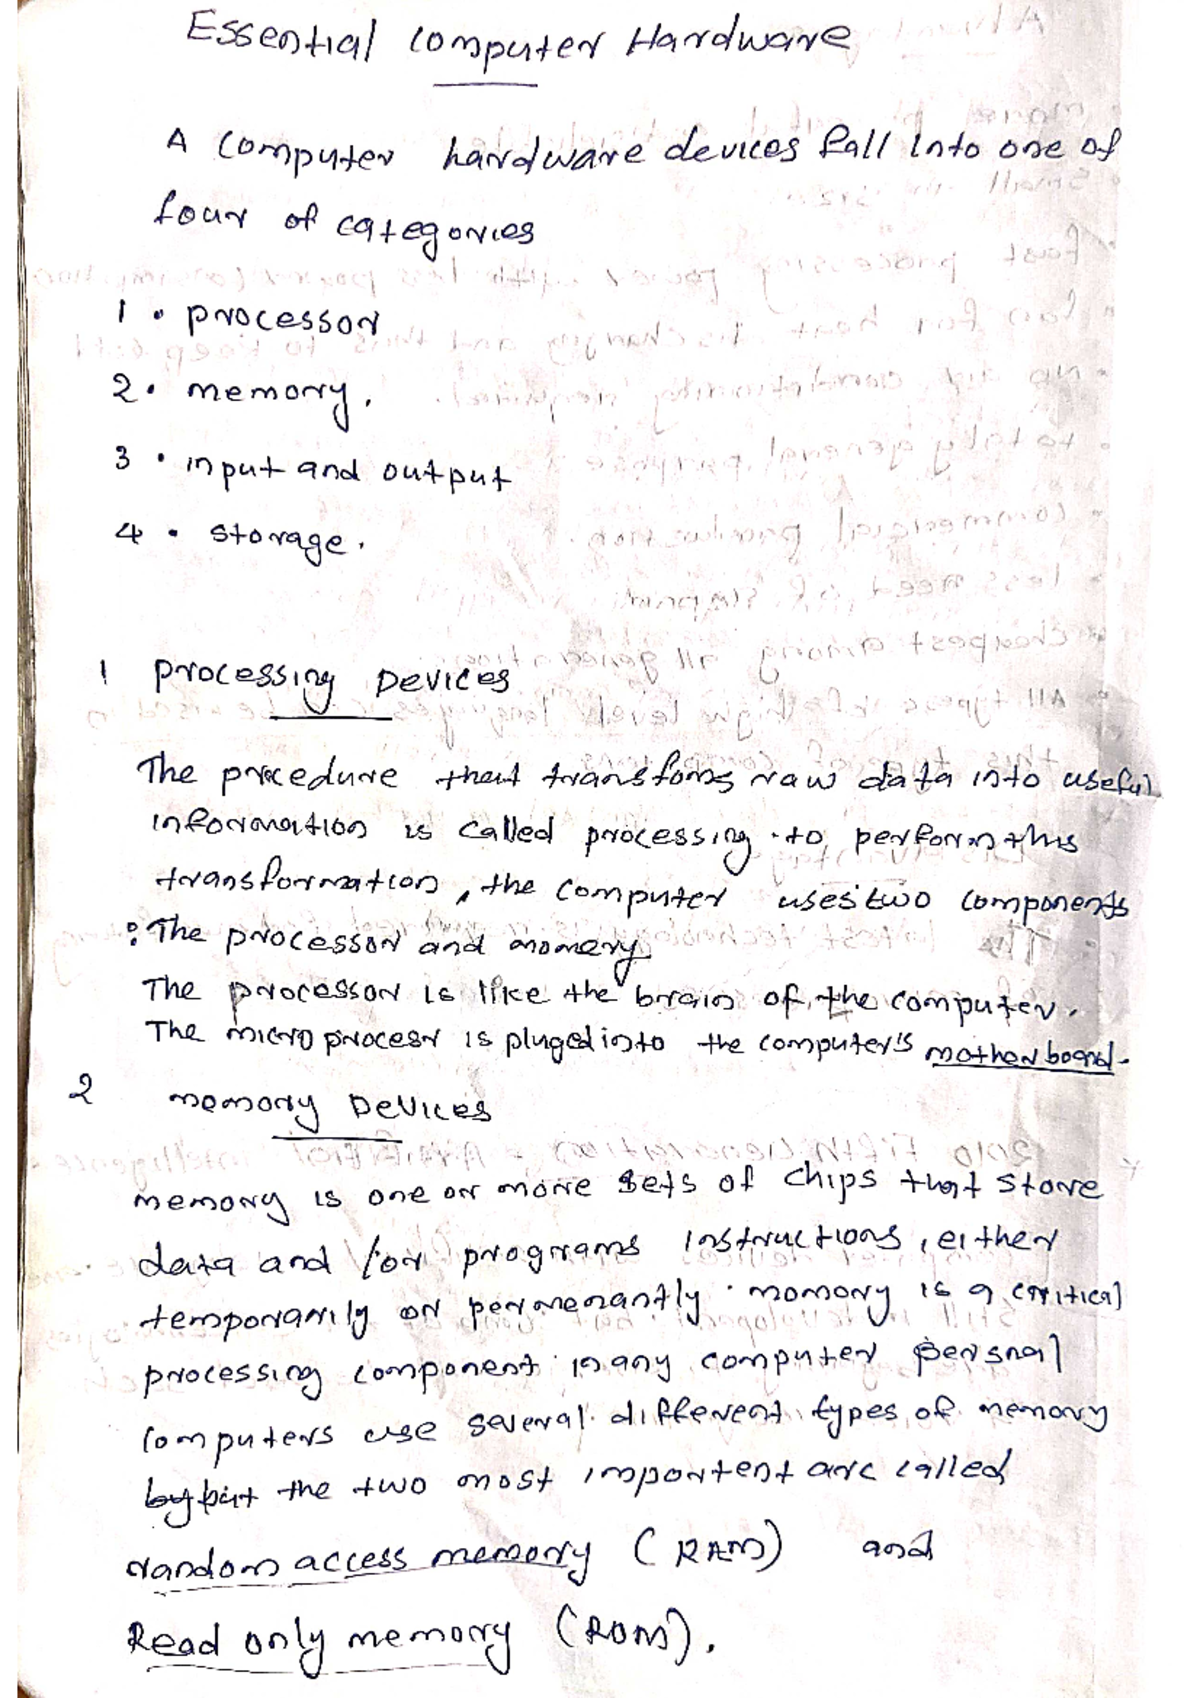 Essential computer Hardware
A computer hardware devices fall into one of
four of categories
1 • processor
2 • memory.
3 • input and output
4 • storage.
1 processing Devices
The procedure that transfoms raw data into useful
information is called processing . to perform this
transformation, the computer uses two components
: The processor and momery
The processor is like the brain of the computer.
The micro procesr is pluged into the computer's motherboard.
2 memory Devices
memory is one or more sets of chips that store
data and /or programs instructions, either
temporarily or permenantly . momory is a critical
processing component in any computer persnal
computers use several different types of memory
by but the two most importent are called
random access memory (RAM) and
Read only memory (ROM).